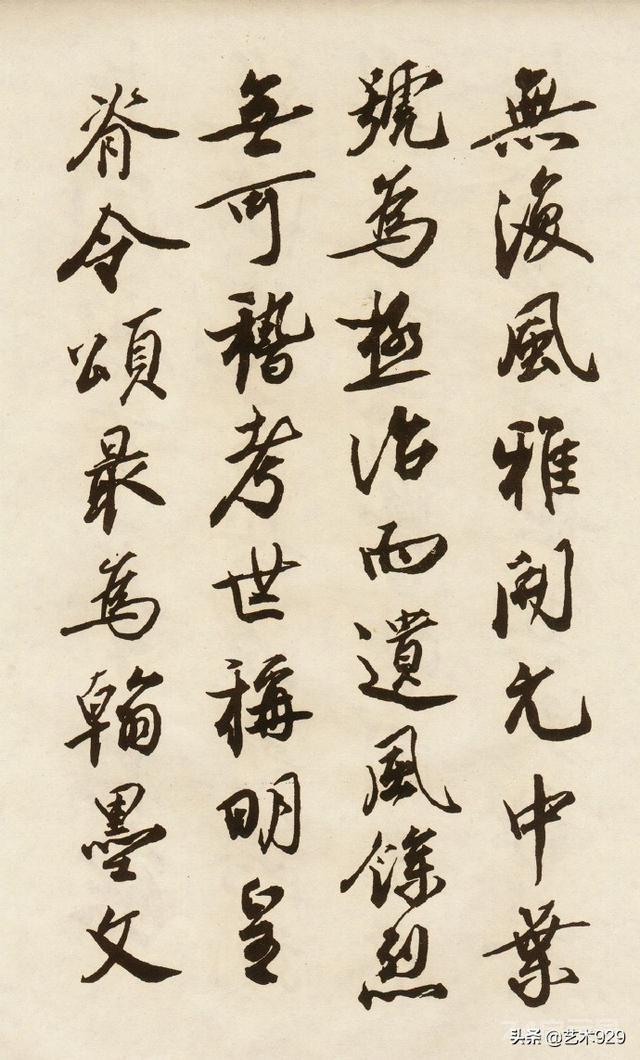 無復風雅開元中葉
號為極治而遺風餘烈
無可稽考世稱明皇
脊令頌最為翰墨文
头条 @艺术929